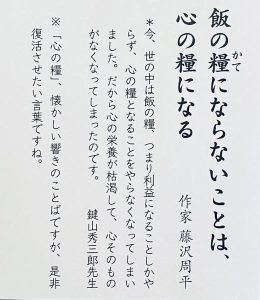 飯の糧にならないことは、
かて
心の糧になる
作家 藤沢周平
＊今、世の中は飯の糧、つまり利益になることしかや
らず、心の糧となることをやらなくなってしまい
ました。だから心の栄養が枯渇して、心そのもの
がなくなってしまったのです。
鍵山秀三郎先生
※「心の糧」、懐かしい響きのことばですが、是非
復活させたい言葉ですね。